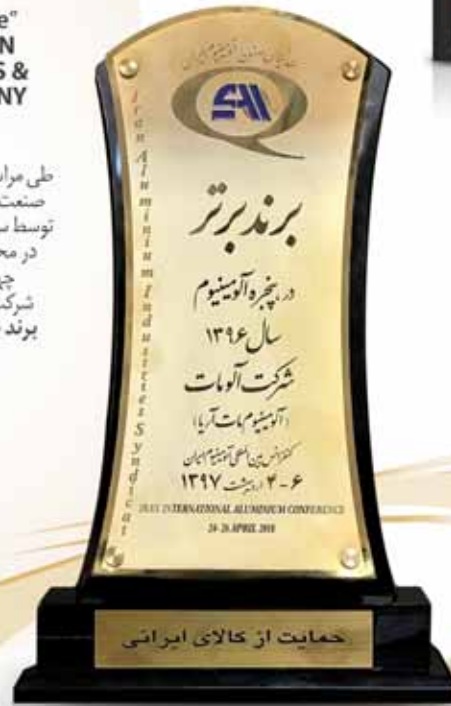 e"
N
S &
NY
طی مراس
صنعت
توسط س
در مح
چه
شرکت
برند
سندیکای صنایع آلومینیوم ایران
Iran Aluminium Industries Syndicat
برند برتر
در پنجره آلومینیوم
سال ۱۳۹۶
شرکت آلومات
(آلومینیوم مات آریا)
کنفرانس بین المللی آلومینیوم ایران
۴-۶ اردیبهشت ۱۳۹۷
IRAN INTERNATIONAL ALUMINIUM CONFERENCE
24-26 APRIL 2018
حمایت از کالای ایرانی